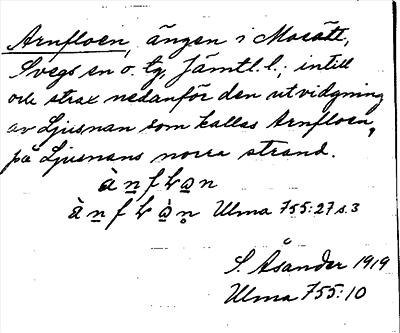 Arnfloen, ängen i Mosätt,
Svegs sn o. tg, Jämtl. l.; intill
och strax nedanför den utvidgning
av Ljusnan som kallas Arnfloen,
på Ljusnans norra strand.
Ulma 755:27 s. 3
S. Åsander 1919
Ulma 755:10